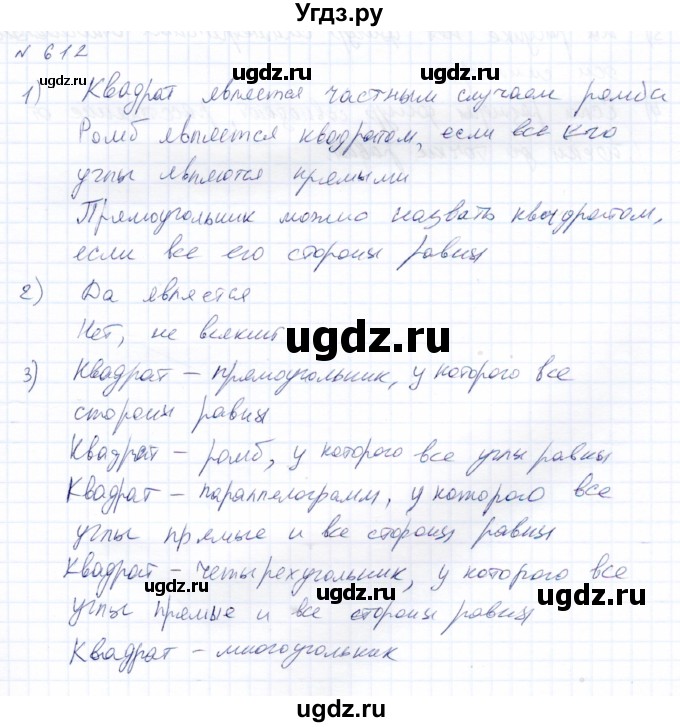 Угдз.ру
N 612
1) Квадрат является частным случаем ромба
Ромб является квадратом, если все его
углы являются прямыми
Прямоугольник можно назвать квадратом,
если все его стороны равны
2) Да является
Нет, не всякий
3) Квадрат – прямоугольник, у которого все
стороны равны
Квадрат – ромб, у которого все углы равны
Квадрат – параллелограмм, у которого все
углы прямые и все стороны равны
Квадрат – четырехугольник, у которого все
углы прямые и все стороны равны
Квадрат – многоугольник
ugdz.ru
ugdz.ru
ugdz.ru
ugdz.ru
ugdz.ru
ugdz.ru
ugdz.ru
ugdz.ru
ugdz.ru
ugdz.ru
ugdz.ru
ugdz.ru
ugdz.ru
ugdz.ru